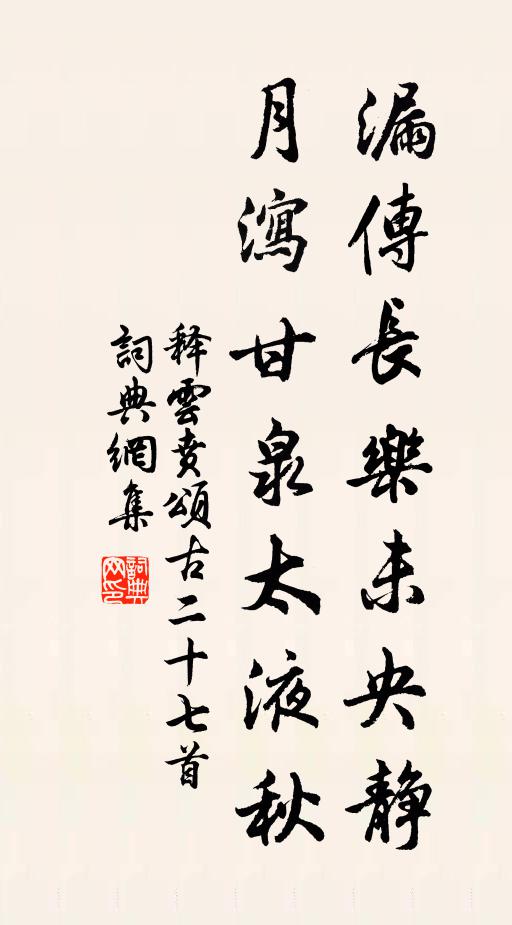 漏傳長樂未央靜
月瀉甘泉太液秋
释雲賁頌古二十七首
詞典網集
詞典网印